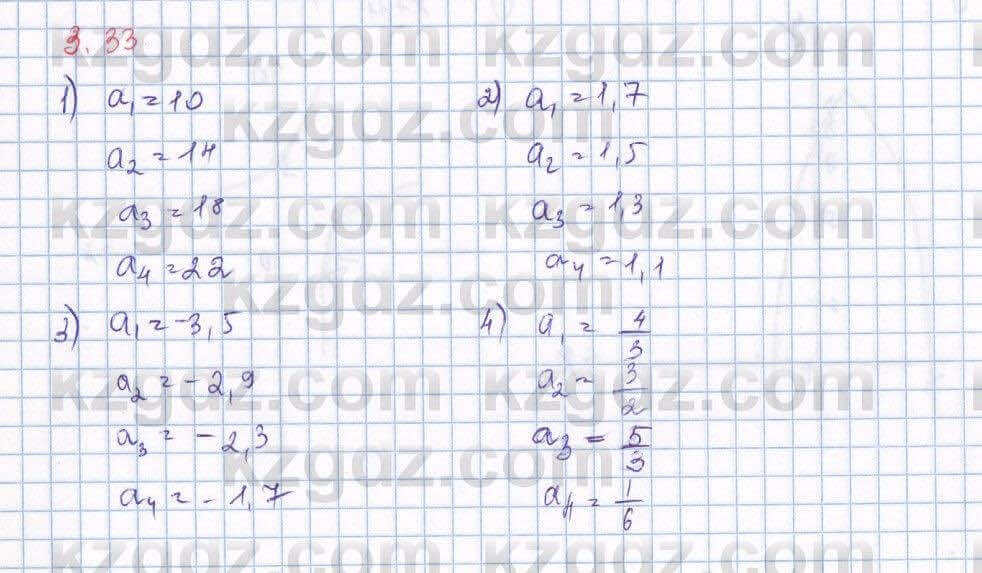 3.33
1) a₁ = 10
a₂ = 14
a₃ = 18
a₄ = 22
2) a₁ = 1,7
a₂ = 1,5
a₃ = 1,3
a₄ = 1,1
3) a₁ = -3,5
a₂ = -2,9
a₃ = -2,3
a₄ = -1,7
4) a₁ = 4/3
a₂ = 3/2
a₃ = 5/3
a₄ = 1/6
kzgdz.com
kzgdz.com
kzgdz.com
kzgdz.com
kzgdz.com
kzgdz.com
kzgdz.com
kzgdz.com
kzgdz.com
kzgdz.com
kzgdz.com